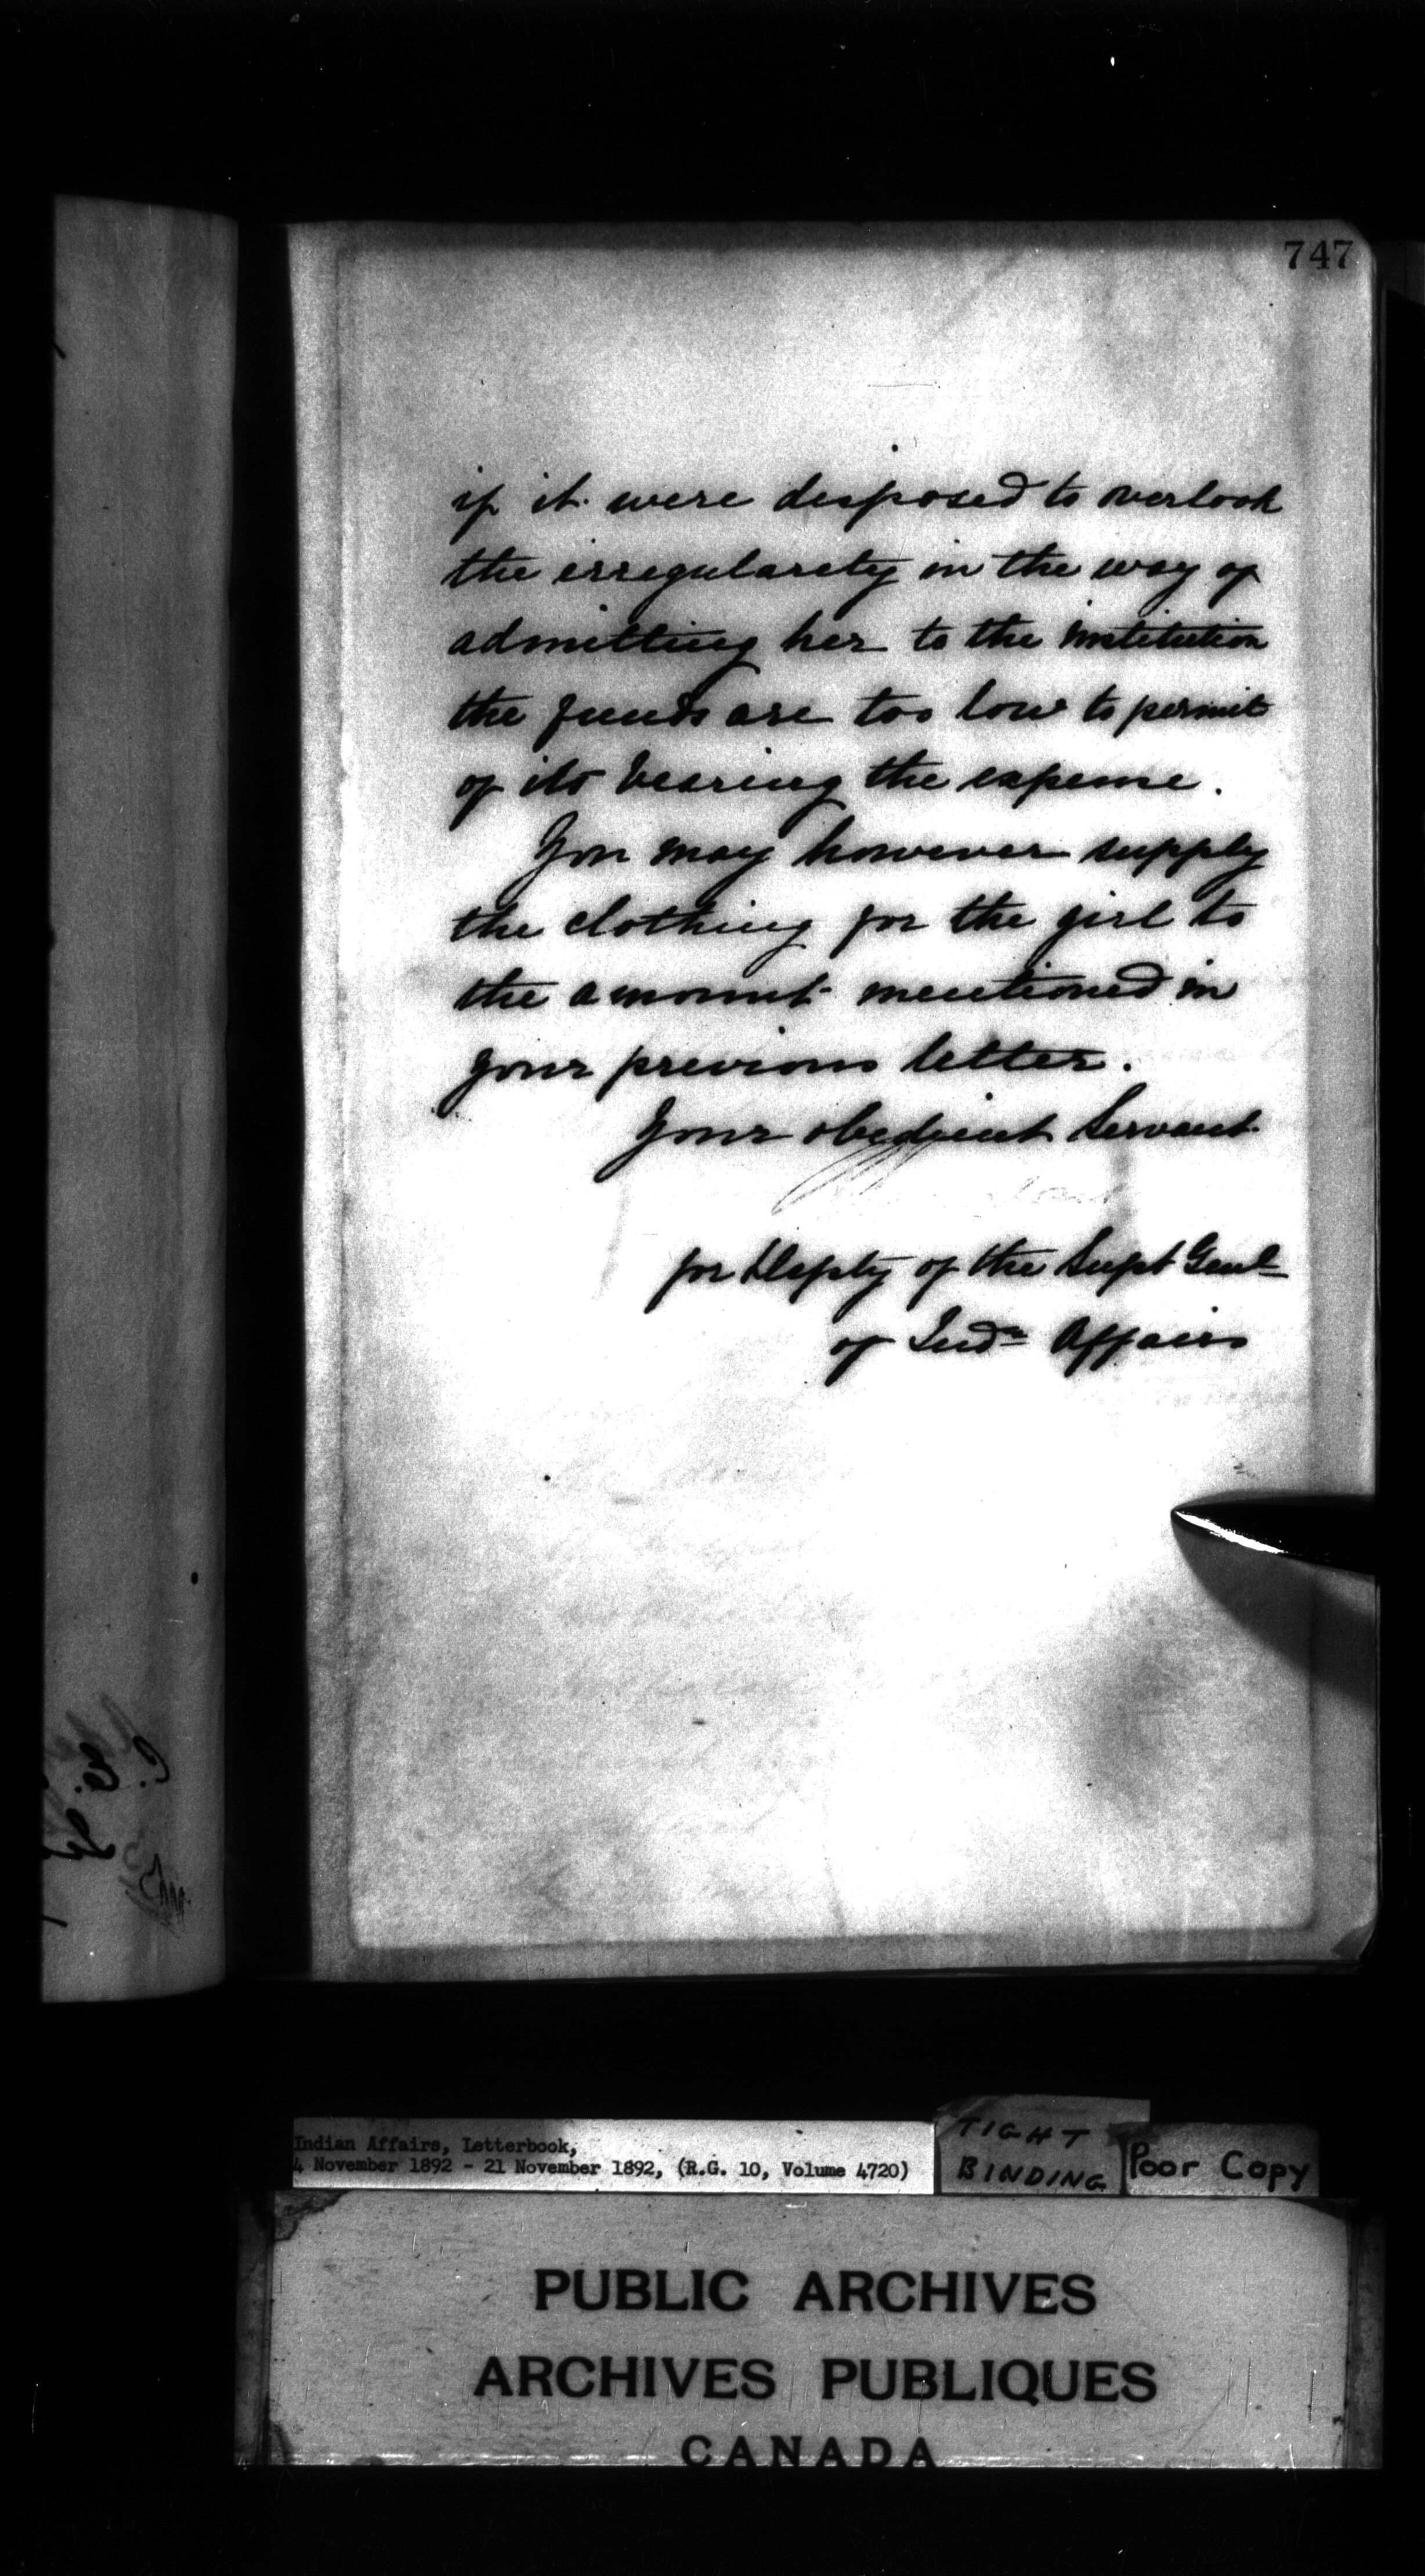 747
if it were disposed to overlook
the irregularity in the way of
admitting her to the institution
the funds are too low to permit
of its bearing the expense.
You may however supply
the clothing for the girl to
the amount mentioned in
your previous letter.
Your obedient Servant
for Depty of the Supt Genl
of Indn Affairs
Indian Affairs, Letterbook,
4 November 1892 - 21 November 1892, (R.G. 10, Volume 4720)
TIGHT
BINDING
Poor Copy
PUBLIC ARCHIVES
ARCHIVES PUBLIQUES
CANADA